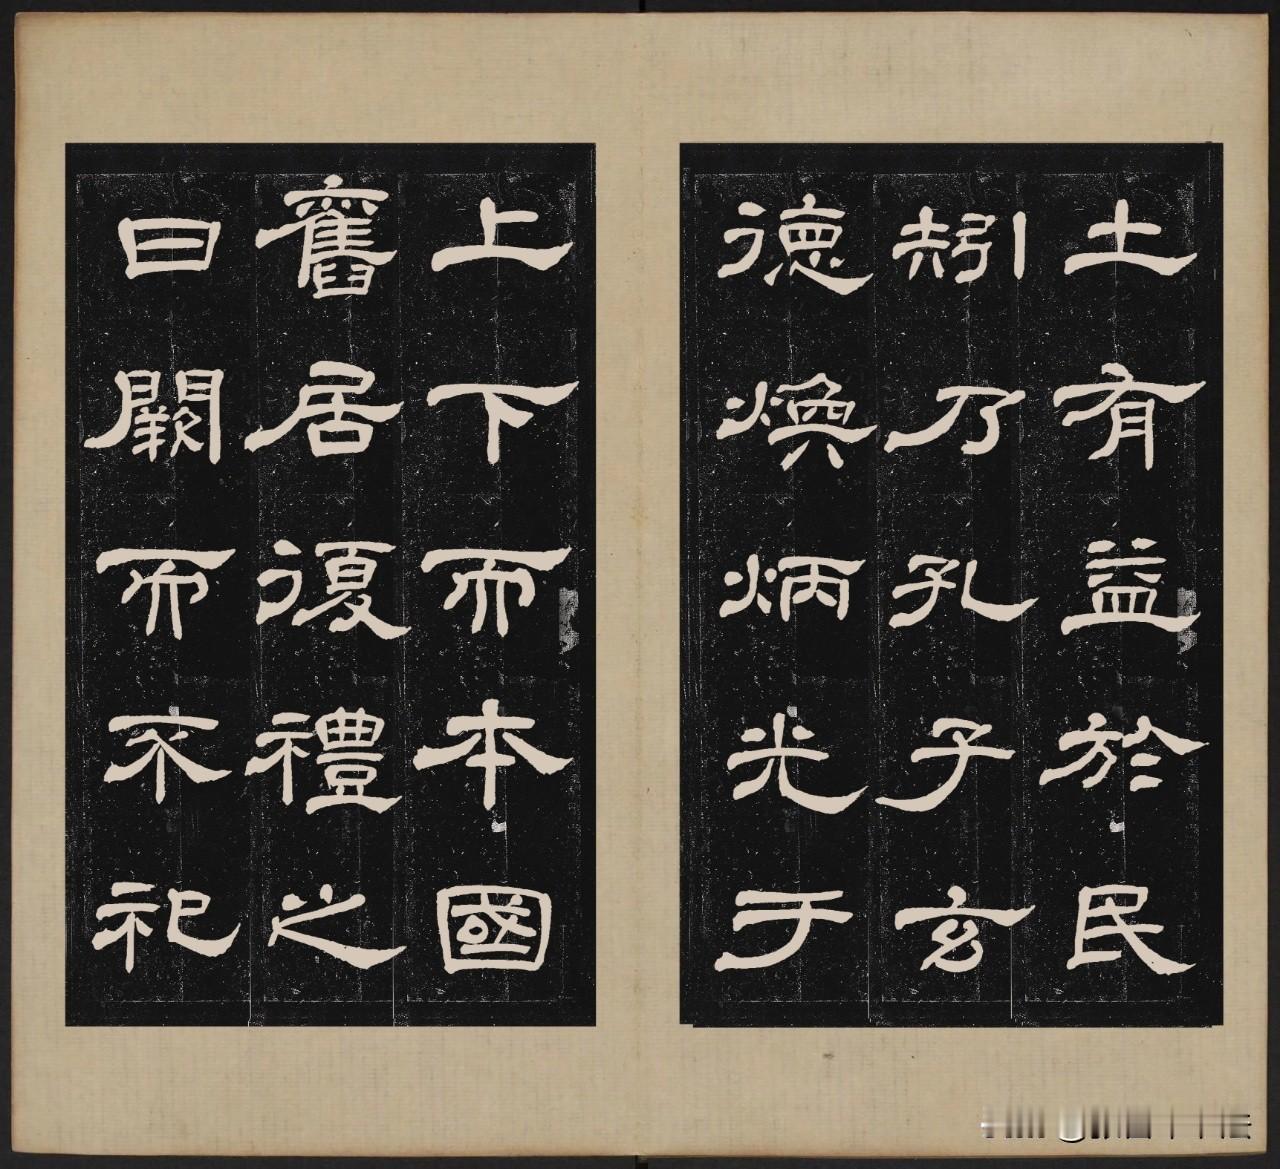 土有益於民
矧乃孔子玄
德煥炳光于
上下而本國
舊居復禮之
日闕而不祀